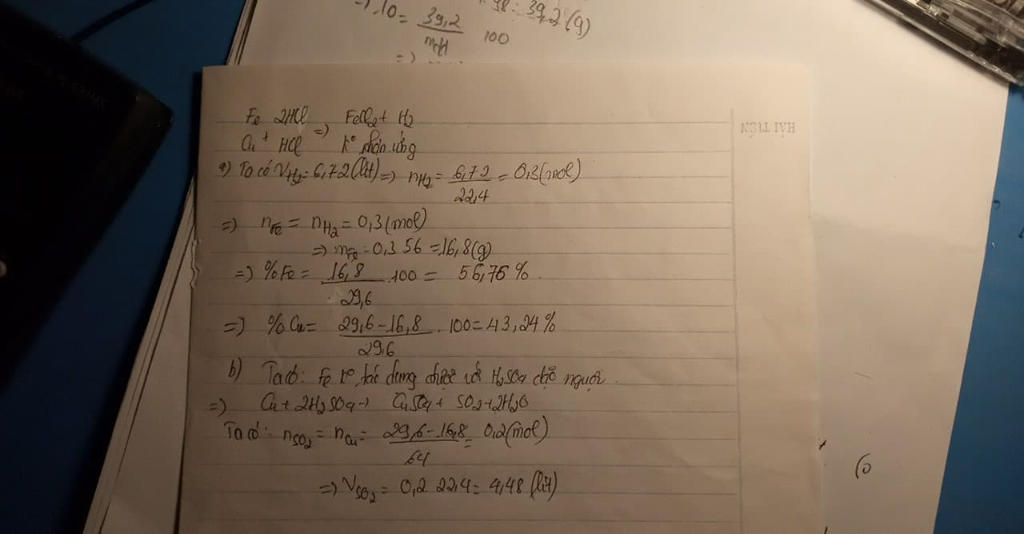 =) 10 = 39,2 / mdd 100
98 = 39,2 (g)
=)
HẢI TIẾN
Fe 2HCl => FeCl2 + H2
Cu + HCl K° phản ứng
a) Ta có VH2 = 6,72 (lít) => nH2 = 6,72 / 22,4 = 0,3 (mol)
=) nFe = nH2 = 0,3 (mol)
=) mFe = 0,3 56 = 16,8 (g)
=) % Fe = 16,8 / 29,6 .100 = 56,75 %
=) % Cu = 29,6 - 16,8 / 29,6 . 100 = 43,24 %
b) Ta có: Fe K° tác dụng được với H2SO4 đặc nguội.
=) Cu + 2H2SO4 → CuSO4 + SO2 + 2H2O
Ta có: nSO2 = nCu = 29,6 - 16,8 / 64 = 0,2 (mol)
=) VSO2 = 0,2 22,4 = 4,48 (lít)